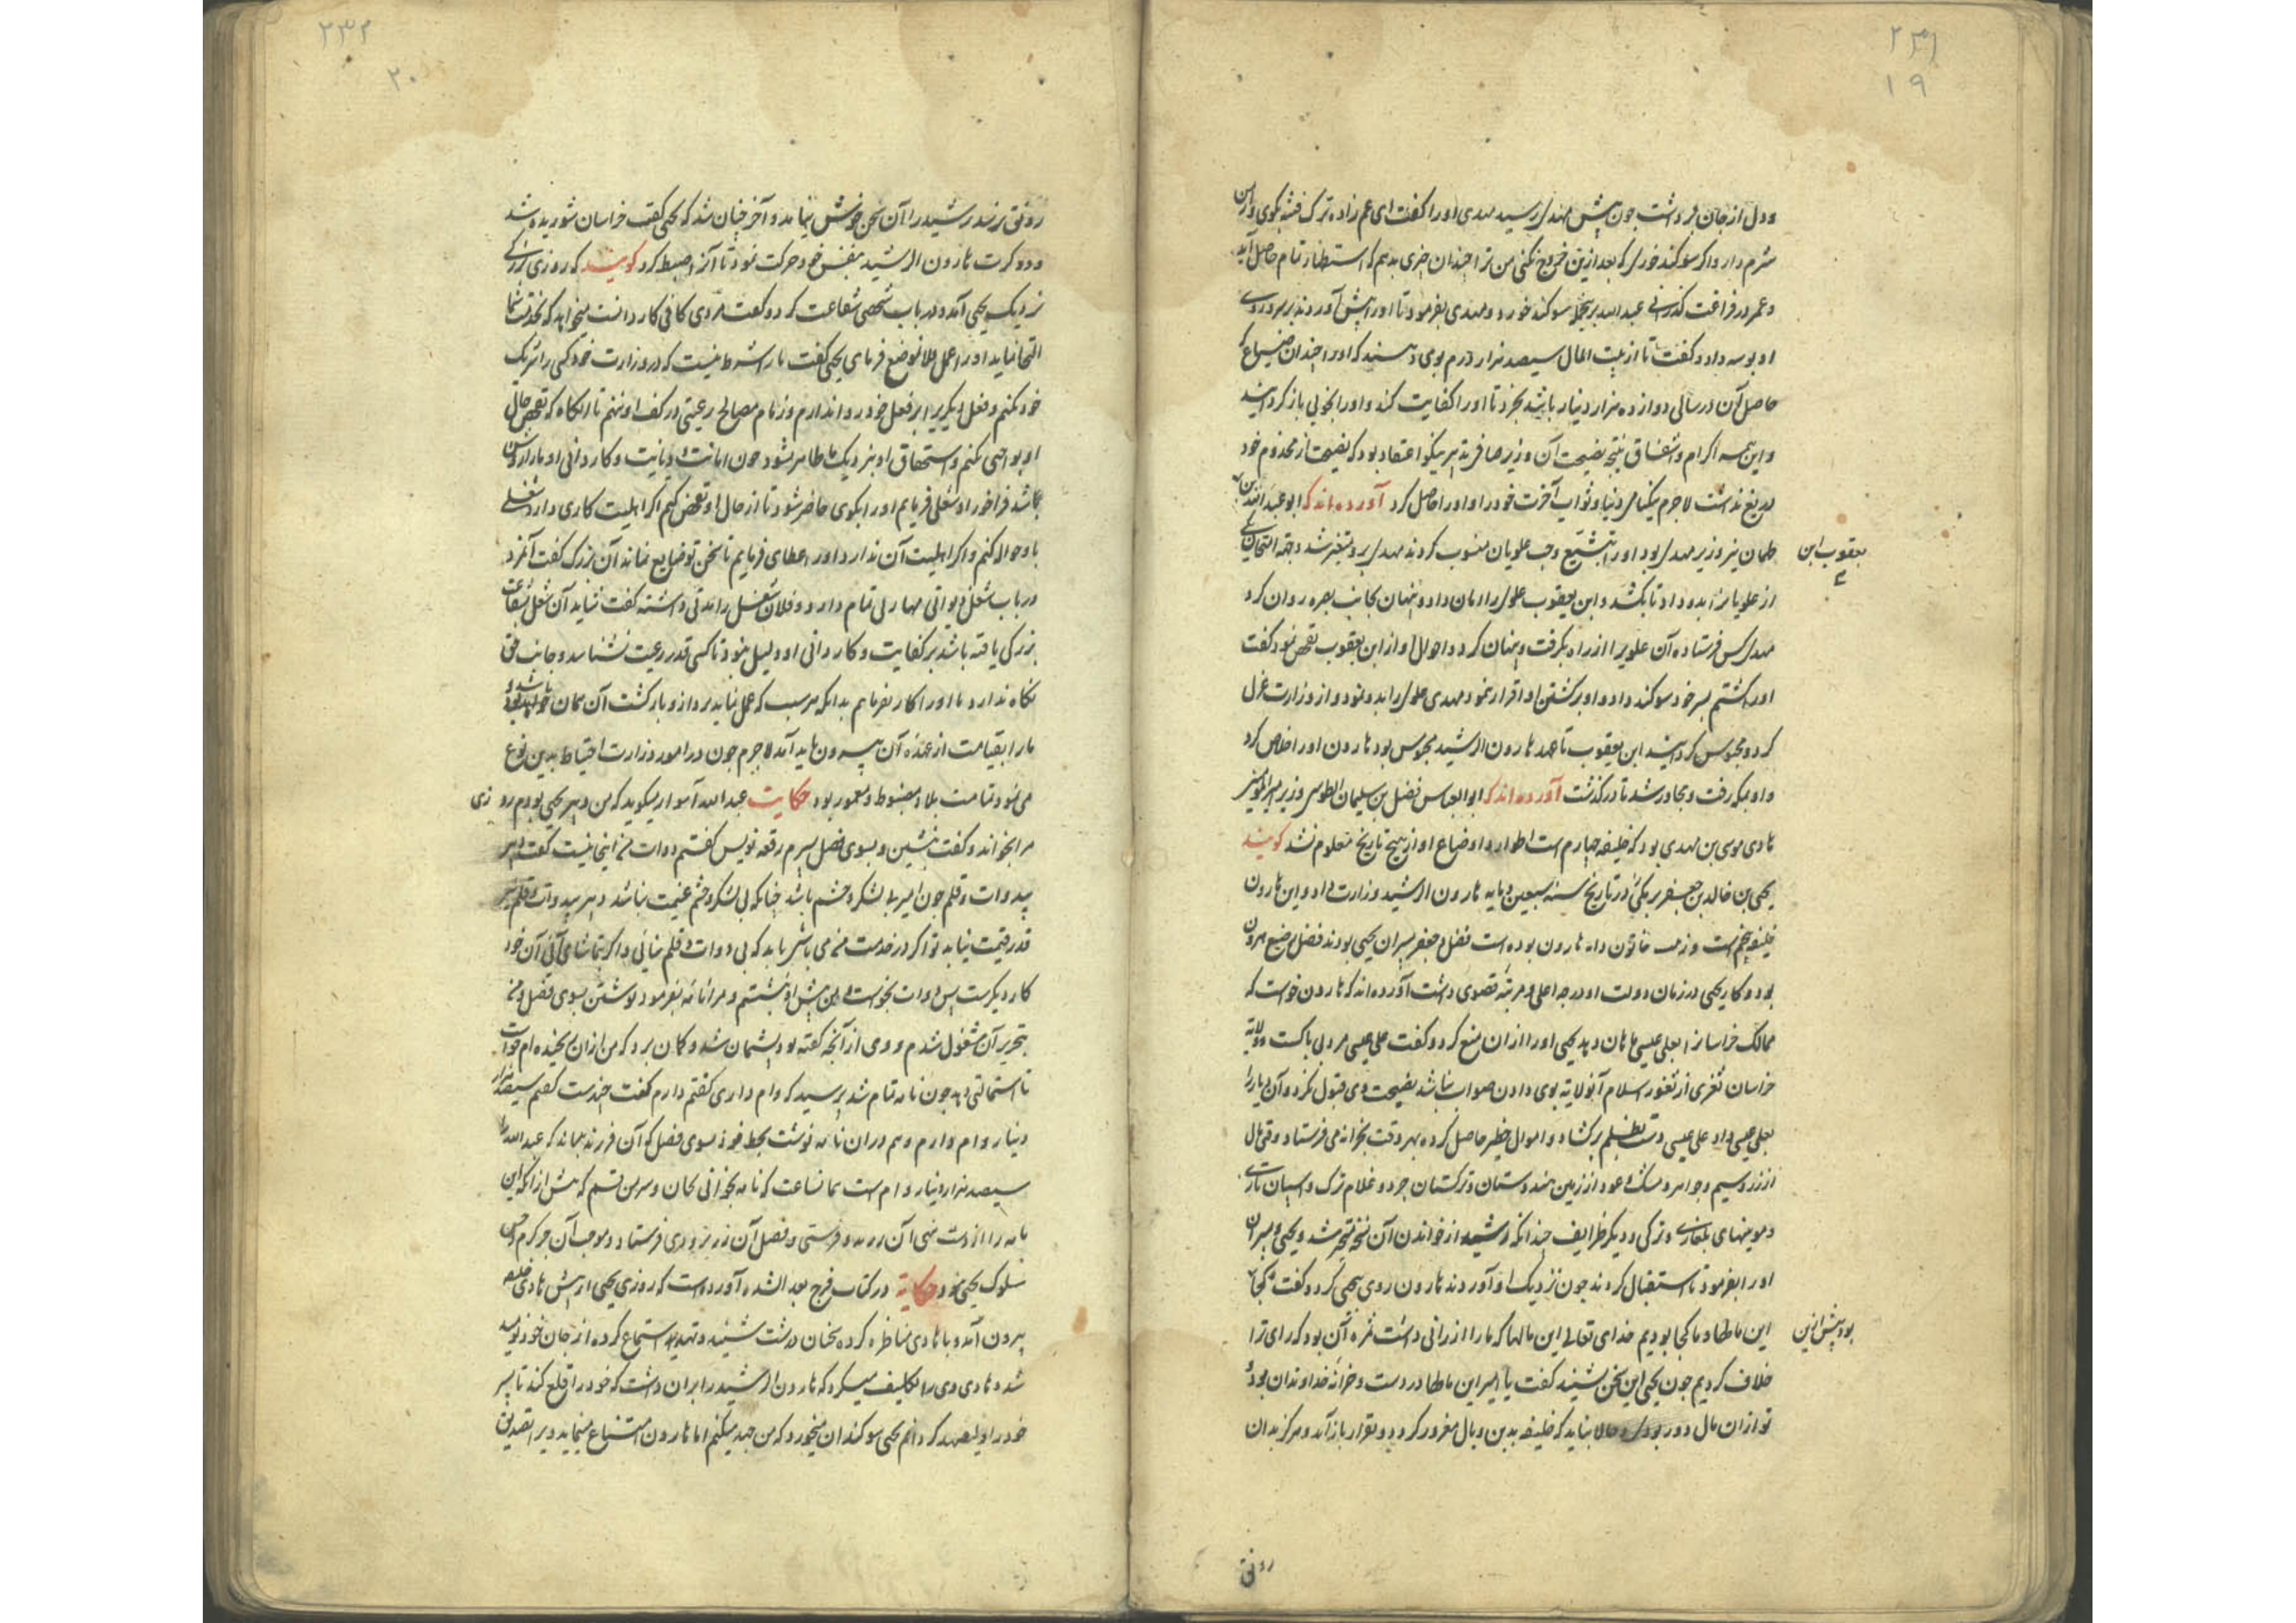 ۲۳۱
۱۹
و دل از جان برداشت چون پیش مهدی رسید مهدی او را گفت ای عم زاده ترک فتنه بکوی و ازین
شرم دار و اگر سوکند خوری که بعد ازین خروج نکنی من ترا چندان چیزی بدهم که استظهار تمام حاصل آید
و عمر در فراغت گذرانی عبدالله برین جمله سوکند خورد و مهدی بفرمود تا او را پیش آوردند بر سر و روی
او بوسه داد و گفت تا از بیت المال سیصد هزار درم بوی دهند که او را چندان ضیاع که
حاصل آن در سالی دوازده هزار دینار باشد بخرد تا او را کفایت کند و او را بخوبی باز گردانید
و این همه اکرام و اشفاق نتیجه نصیحت آن وزیر صافی تدبیر نیکو اعتقاد بود که نصیحت از مخدوم خود
دریغ نداشت لاجرم نیکنامی دنیا و ثواب آخرت خود را و او را حاصل کرد آورده‌اند که ابو عبدالله بن
یعقوب ابن
طهمان نیز وزیر مهدی بود او را بتشیع و حب علویان منسوب کردند مهدی برو متغیر شد و جهة امتحان یکی
از علویان را بدو داد تا بکشد و ابن یعقوب علوی را امان داد و پنهان بجانب بصره روان کرد
مهدی کس فرستاده آن علوی را از راه بگرفت و پنهان کرد و احوال او از ابن یعقوب تفحص نمود گفت
او را کشتم بسر خود سوکند داد و او بر کشتن او اقرار نمود مهدی علوی را بدو نمود و از وزارت عزل
کرد و محبوس گردانید ابن یعقوب تا عهد هارون الرشید محبوس بود هارون او را خلاص کرد
و او بمکه رفت و مجاور شد تا درگذشت آورده‌اند که ابو العباس فضل بن سلیمان الطوسی وزیر امیر المومنین
هادی موسی بن مهدی بود که خلیفه چهارم است اطوار و اوضاع او از هیچ تاریخ معلوم نشد گویند
یحیی بن خالد بن جعفر برمکی در تاریخ سنه سبعین و مایه هارون الرشید وزارت داد و این هارون
خلیفه پنجم است و زینب خاتون دایه هارون بوده است فضل و جعفر پسران یحیی بودند فضل رضیع هارون
بود و کار یحیی در زمان دولت او درجه اعلی و مرتبه قصوی داشت آورده‌اند که هارون خواست که
ممالک خراسان را بعلی عیسی ماهان دهد یحیی او را از ان منع کرد و گفت علی عیسی مردی باکست و ولایة
خراسان ثغری از ثغور اسلام آن ولایة بوی دادن صواب نباشد نصیحت وی قبول نکرد و آن دیار را
بعلی عیسی داد علی عیسی دست بظلم برگشاد و اموال خطیر حاصل کرده بهر وقت بخزانه می فرستاد وقتی مال
از زر و سیم و جواهر و مشک و عود از زمین هندوستان و ترکستان جرد و غلام ترک و اسپان تازی
و موینهای بلغاری و ترکی و دیگر ظرایف چندانکه رشید از خواندن آن نسخه متحیر شد و یحیی و پسران
او را بفرمود تا استقبال کردند چون نزدیک او آوردند هارون روی بیحیی کرد و گفت کجا
بود پیش ازین
این مالها و ما کجا بودیم خدای تعالی این مالها که ما را ارزانی داشت ثمره آن بود که رای ترا
خلاف کردیم چون یحیی این سخن بشنید گفت یا امیر این مالها در دست و خزانه خداوندان بود
تو ازان مال دور بودی و حالا نباید که خلیفه بدین وبال مغرور گردد و بقرار باز آمد و هرگز بدان
رونق
۲۳۲
۲۰
رونق نرسد رشید را آن سخن خوش نیامد و آخر چنان شد که یحیی گفت خراسان شوریده شد
و دو کرت هارون الرشید بنفس خود حرکت نمود تا آنرا ضبط کرد گویند که روزی بزرگی
نزدیک یحیی آمد و در باب شخصی شفاعت کرد و گفت مردی کافی کاردانست میخواهد که بخدمت شما
التجا نماید او را عمل فلان موضع فرمای یحیی گفت ما را شرط نیست که در وزارت خود کسی را شریک
خود کنم و فعل دیگری را بر فعل خود روا ندارم و زمام مصالح رعیتی در کف او ننهم تا آنگاه که تفحص حال
او بواجبی نکنم و استحقاق او بنزدیک ما ظاهر نشود چون امانت و دیانت و کاردانی او ما را روشن
باشد فراخور او شغلی فرمایم او را بگوی حاضر شود تا از حال او تفحص کنیم اگر اهلیت کاری دارد شغلی
باو حواله کنم و اگر اهلیت آن ندارد او را عطای فرمایم تا سخن تو ضایع نماند آن بزرگ گفت آنمرد
در باب شغل دیوانی مهارتی تمام دارد و فلان شغل را مدتی داشته گفت شاید آن شغل بشفاعت
بزرگی یافته باشد بر کفایت و کاردانی او دلیل نبود تا کسی قدر رعیت نشناسد و جانب حق
نگاه ندارد ما او را کار نفرمایم بدانکه هر سبب که عمل نباید بر دازو بازگشت آن همان خواهد بود
باشد و
ما را بقیامت از عهده آن بیرون باید آمد لاجرم چون در امور وزارت احتیاط بدین نوع
می نمود تمامت بلاد مضبوط و معمور بود حکایت عبدالله اسوار میگوید که من دبیر یحیی بودم روزی
مرا بخواند و گفت بنشین و بسوی فضل پسرم رقعه نویس گفتم دوات من اینجا نیست گفت دبیر
بی دوات و قلم چون امیر بی لشکر و حشم باشد چنانکه بی لشکر و حشم غنیمت نباشد دبیر بی دوات و قلم نیز
قدر قیمت نیابد تو اگر در خدمت من می باشی باید که بی دوات و قلم نیائی و اگر بتماشای آئی آن خود
کار دیگرست پس دوات بخواست و من پیش او بنشستم و مرا نامه بفرمود نوشتن بسوی فضل و من
بتحریر آن مشغول شدم و وی از آنچه گفته بود پشیمان شد و گمان برد که من ازان رنجیده ام خواست
تا استمالتی دهد چون نامه تمام شد پرسید که وام داری گفتم دارم گفت چندست گفتم سیصد هزار
دینار وام دارم و هم دران نامه نوشت بخط خود بسوی فضل که آن فرزند بداند که عبدالله را
سیصد هزار دینار وام است بهمان ساعت که نامه بخوانی بجان و سر من قسم که پیش از آنکه این
نامه را از دست نهی آن زر بدو فرستی و فضل آن زر بزودی فرستاد و موجب آن جز کرم و حسن
سلوک یحیی نبود حکایة در کتاب فرج بعد الشده آورده است که روزی یحیی از پیش هادی خلیفه
بیرون آمد و با هادی مناظره کرده سخنان درشت شنیده و تهدید استماع کرده از جان خود نومید
شد و هادی وی را تکلیف میکرد که هارون الرشید را بران داشت که خود را خلع کند تا پسر
خود را ولیعهد گردانم یحیی سوکندان میخورد که من جهد میکنم اما هارون امتناع مینماید و بر تصدیق